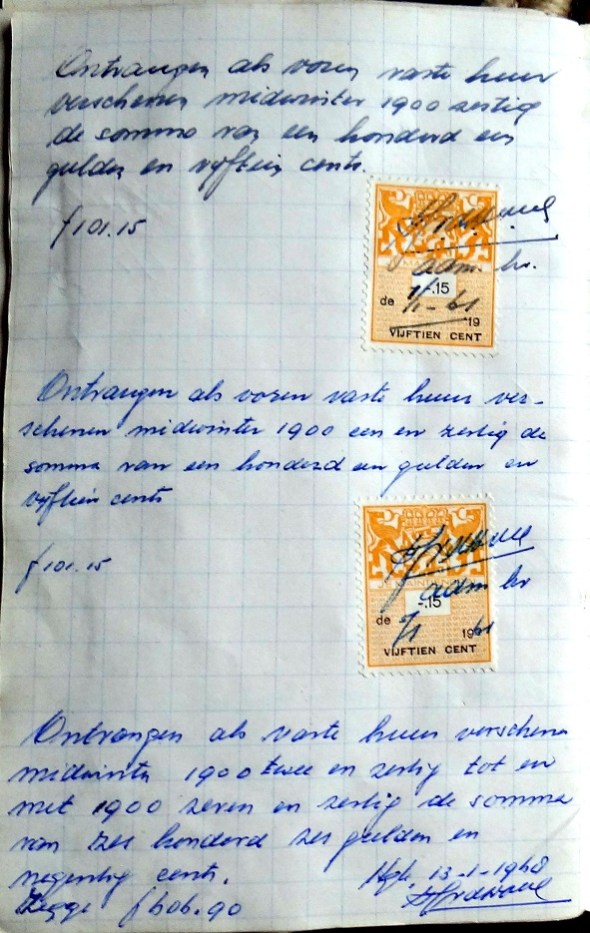 Ontvangen als voren vaste huur
verschenen midwinter 1900 zestig
de somma van een honderd een
gulden en vijftien cents.
f 101.15
adm. hr.
-.15
de 7/1 - 61
19
VIJFTIEN CENT
Ontvangen als voren vaste huur ver-
schenen midwinter 1900 een en zestig de
somma van een honderd een gulden en
vijftien cents
f 101.15
adm hr
-.15
de 7/1 1961
VIJFTIEN CENT
Ontvangen als vaste huur verschenen
midwinter 1900 twee en zestig tot en
met 1900 zeven en zestig de somma
van zes honderd zes gulden en
negentig cents.
Zegge f 606.90
13-1-1968